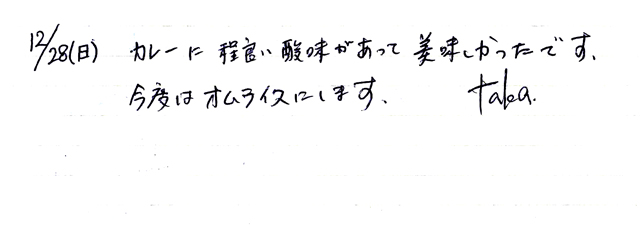 12/28(日) カレーに程良い酸味があって美味しかったです、
今度はオムライスにします、 taka.